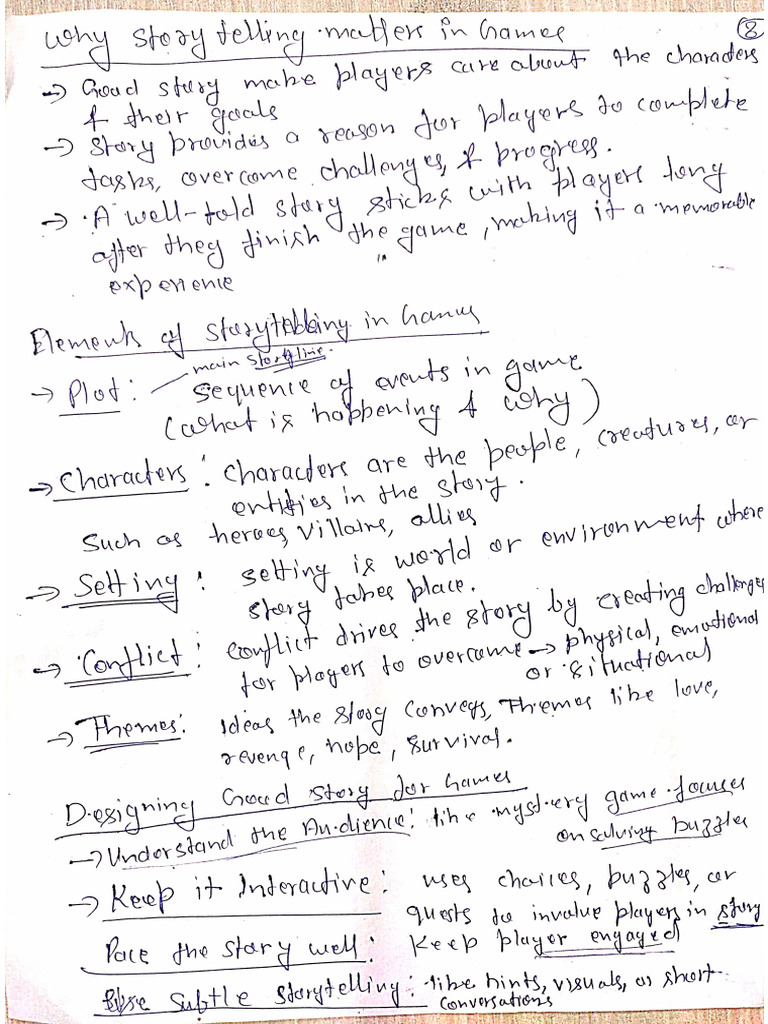 Why Storytelling matters in Games
8
→ Good story make players care about the characters
& their goals
→ Story provides a reason for players to complete
tasks, overcome challenges, & progress.
→ A well-told story sticks with players long
after they finish the game, making it a memorable
experience
Elements of Storytelling in Games
→ Plot: main storyline.
Sequence of events in game
(what is happening & why)
→ Characters: characters are the people, creatures, or
entities in the story.
Such as heroes, villains, allies
→ Setting: setting is world or environment where
story takes place.
→ Conflict: conflict drives the story by creating challenges
for players to overcome → physical, emotional
or situational
→ Themes: Ideas the story conveys, Themes like love,
revenge, hope, survival.
Designing Good story for Games
→ Understand the Audience: like mystery game focuses
on solving puzzles
→ Keep it Interactive: uses choices, puzzles, or
quests to invalue players in story
Pace the story well: Keep player engaged
Use Subtle Storytelling: like hints, visuals, or short
conversations